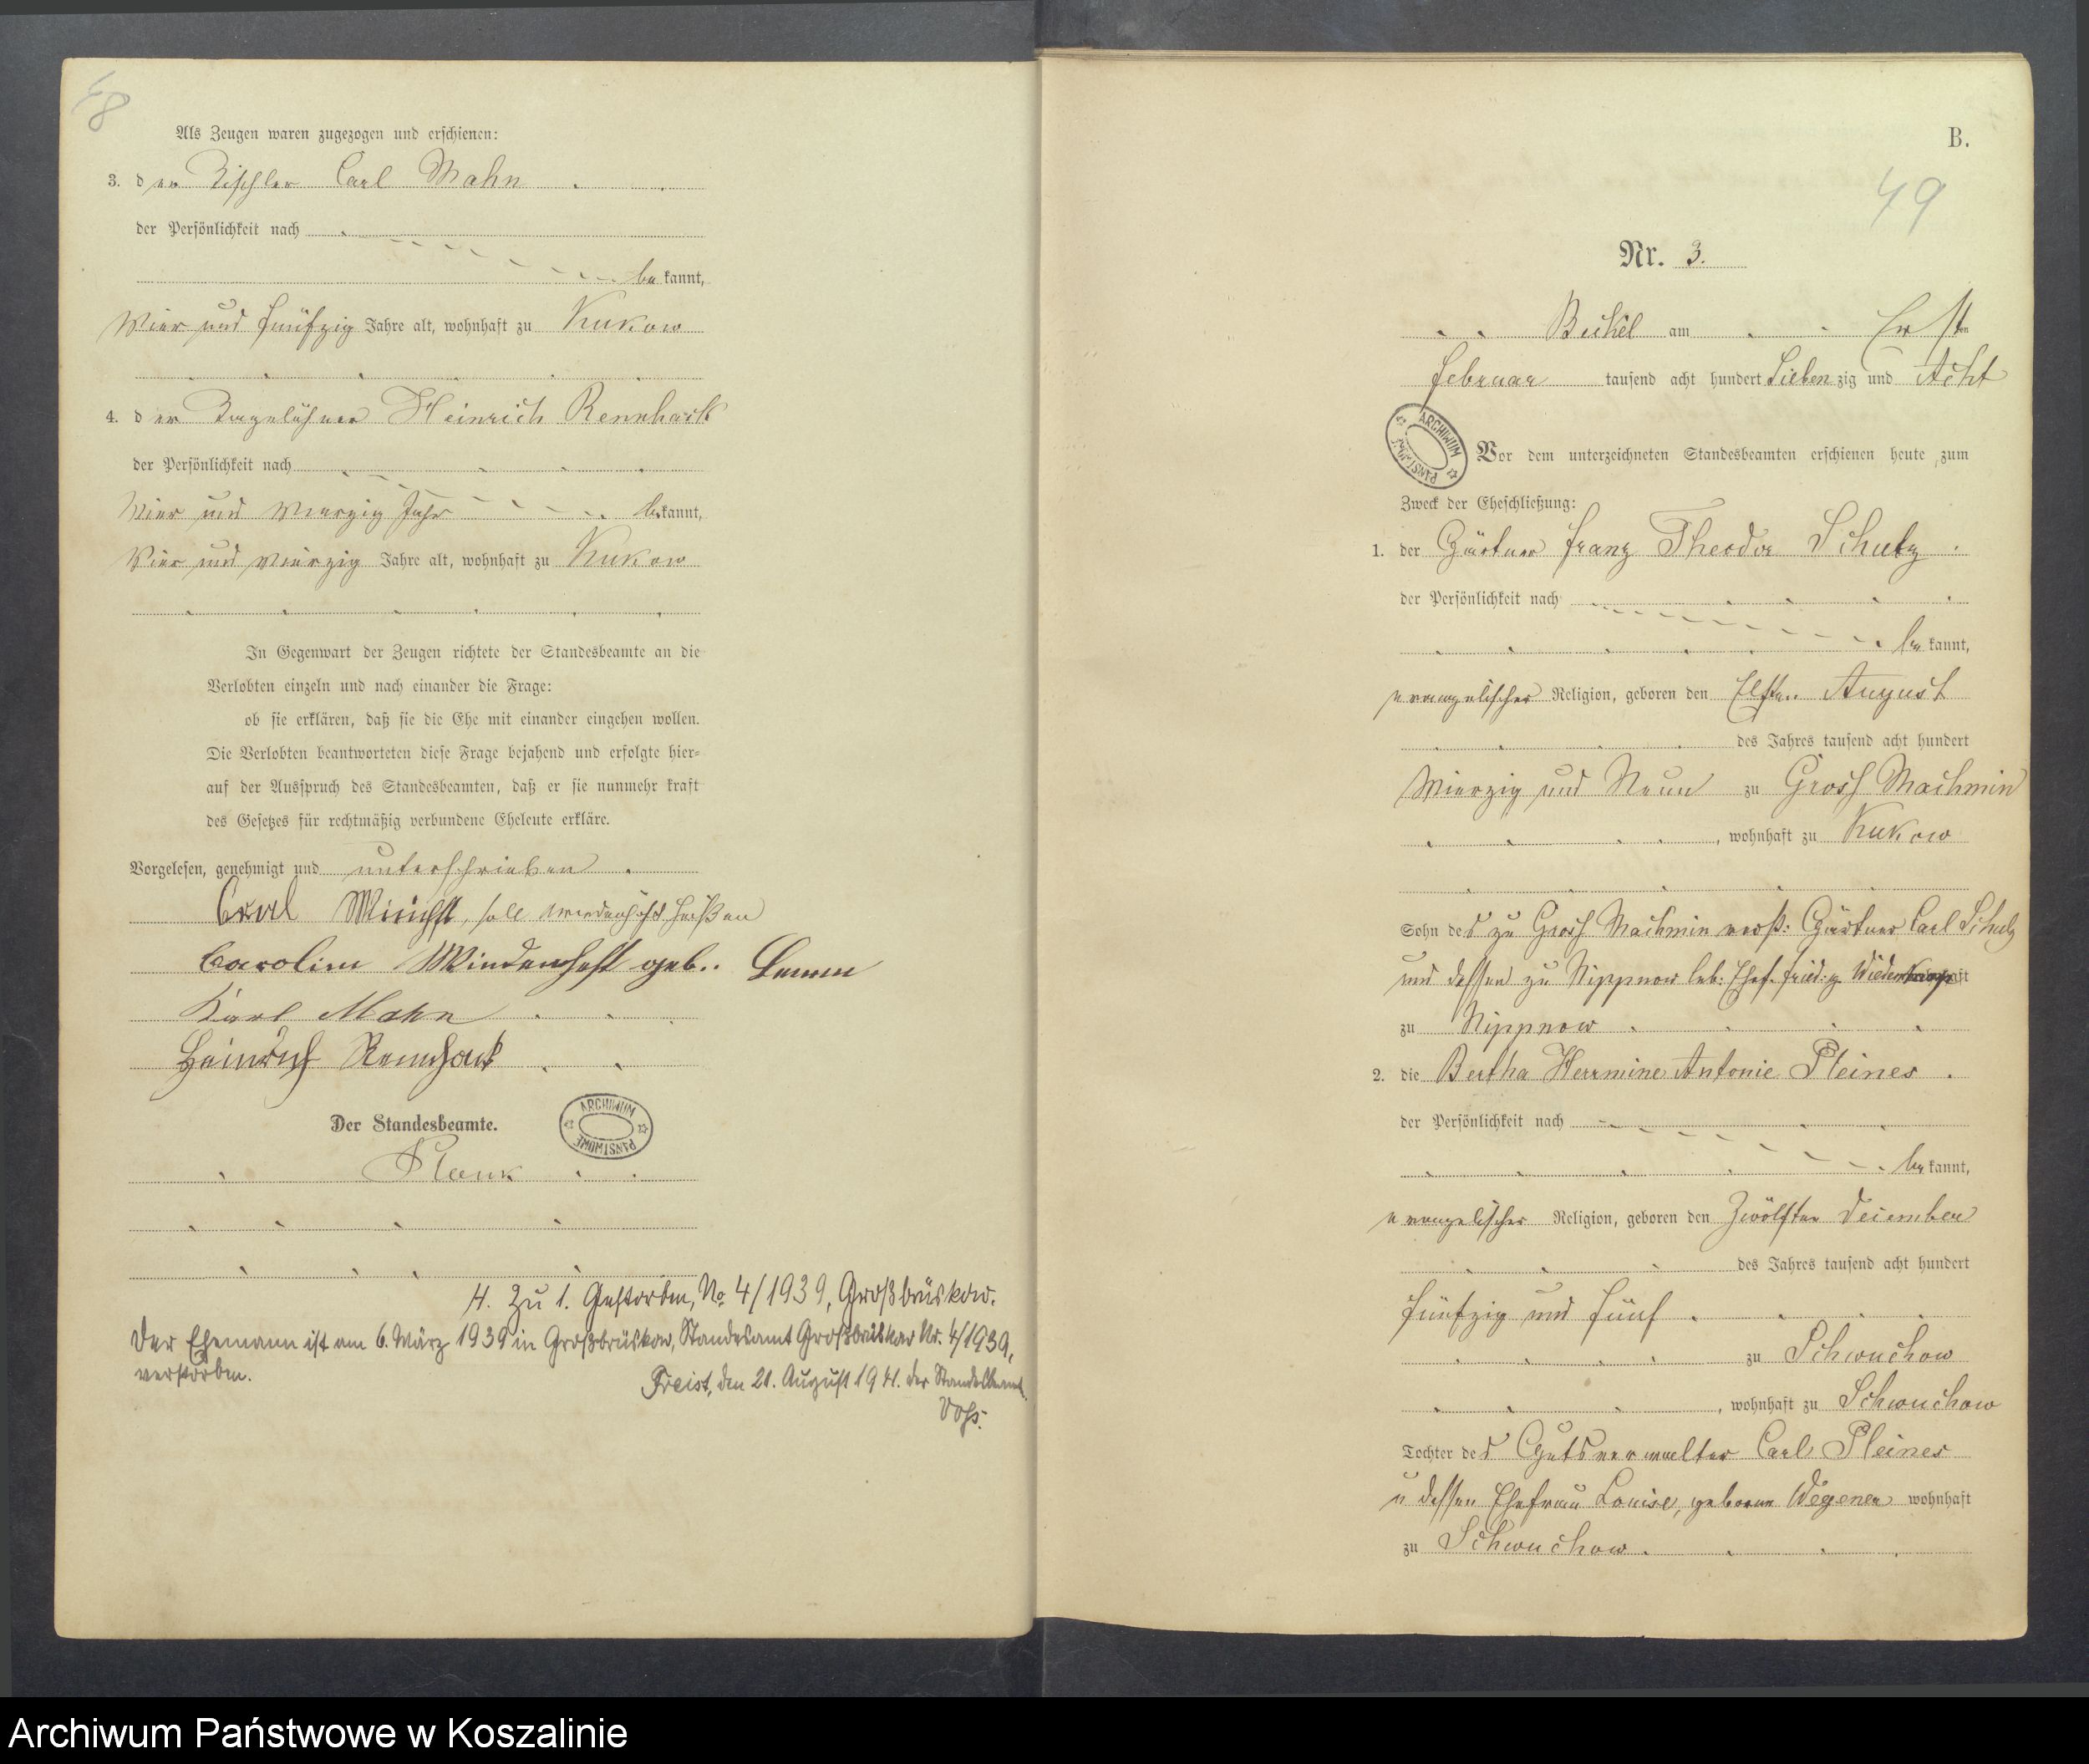 48
Als Zeugen waren zugezogen und erschienen:
3. der Tischler Carl Mahn
der Persönlichkeit nach
bekannt,
Vier und fünfzig Jahre alt, wohnhaft zu Kukow
4. der Tagelöhner Heinrich Rennhack
der Persönlichkeit nach
Vier und vierzig Jahr bekannt,
Vier und vierzig Jahre alt, wohnhaft zu Kukow
In Gegenwart der Zeugen richtete der Standesbeamte an die
Verlobten einzeln und nach einander die Frage:
ob sie erklären, daß sie die Ehe mit einander eingehen wollen.
Die Verlobten beantworteten diese Frage bejahend und erfolgte hier=
auf der Ausspruch des Standesbeamten, daß er sie nunmehr kraft
des Gesetzes für rechtmäßig verbundene Eheleute erkläre.
Vorgelesen, genehmigt und unterschrieben
Carl soll heißen
Carolin geb..
Karl Mahn
Heinrich Rennhack
Der Standesbeamte.
ARCHIWUM PAŃSTWOWE
Plank
H. Zu 1. Gestorben, No 4/1939, Großbrüskow.
Der Ehemann ist am 6. März 1939 in Großbrüskow, Standesamt Großbrüskow Nr. 4/1939,
verstorben.
Freist, den 21. August 1941. der Standesbeamte
Voß.
B.
49
Nr. 3.
am Ersten
Februar tausend acht hundert Siebenzig und Acht
ARCHIWUM PAŃSTWOWE
Vor dem unterzeichneten Standesbeamten erschienen heute, zum
Zweck der Eheschließung:
1. der Gärtner Franz Theodor Schulz
der Persönlichkeit nach
bekannt,
evangelischer Religion, geboren den Elften August
des Jahres tausend acht hundert
Vierzig und Neun zu Gross Machmin
, wohnhaft zu Kukow
Sohn des zu Gross Machmin verst: Gärtner Carl Schulz
und dessen zu Nippnow leb: Ehef. Fried: g.
zu Nippnow
2. die Bertha Herrmine Antonie Pleines
der Persönlichkeit nach
bekannt,
evangelischer Religion, geboren den Zwölften December
des Jahres tausend acht hundert
fünfzig und fünf
zu Schwuchow
, wohnhaft zu Schwuchow
Tochter des Gutsverwalter Carl Pleines
u dessen Ehefrau Louise, geborne Wegener wohnhaft
zu Schwuchow.
Archiwum Państwowe w Koszalinie